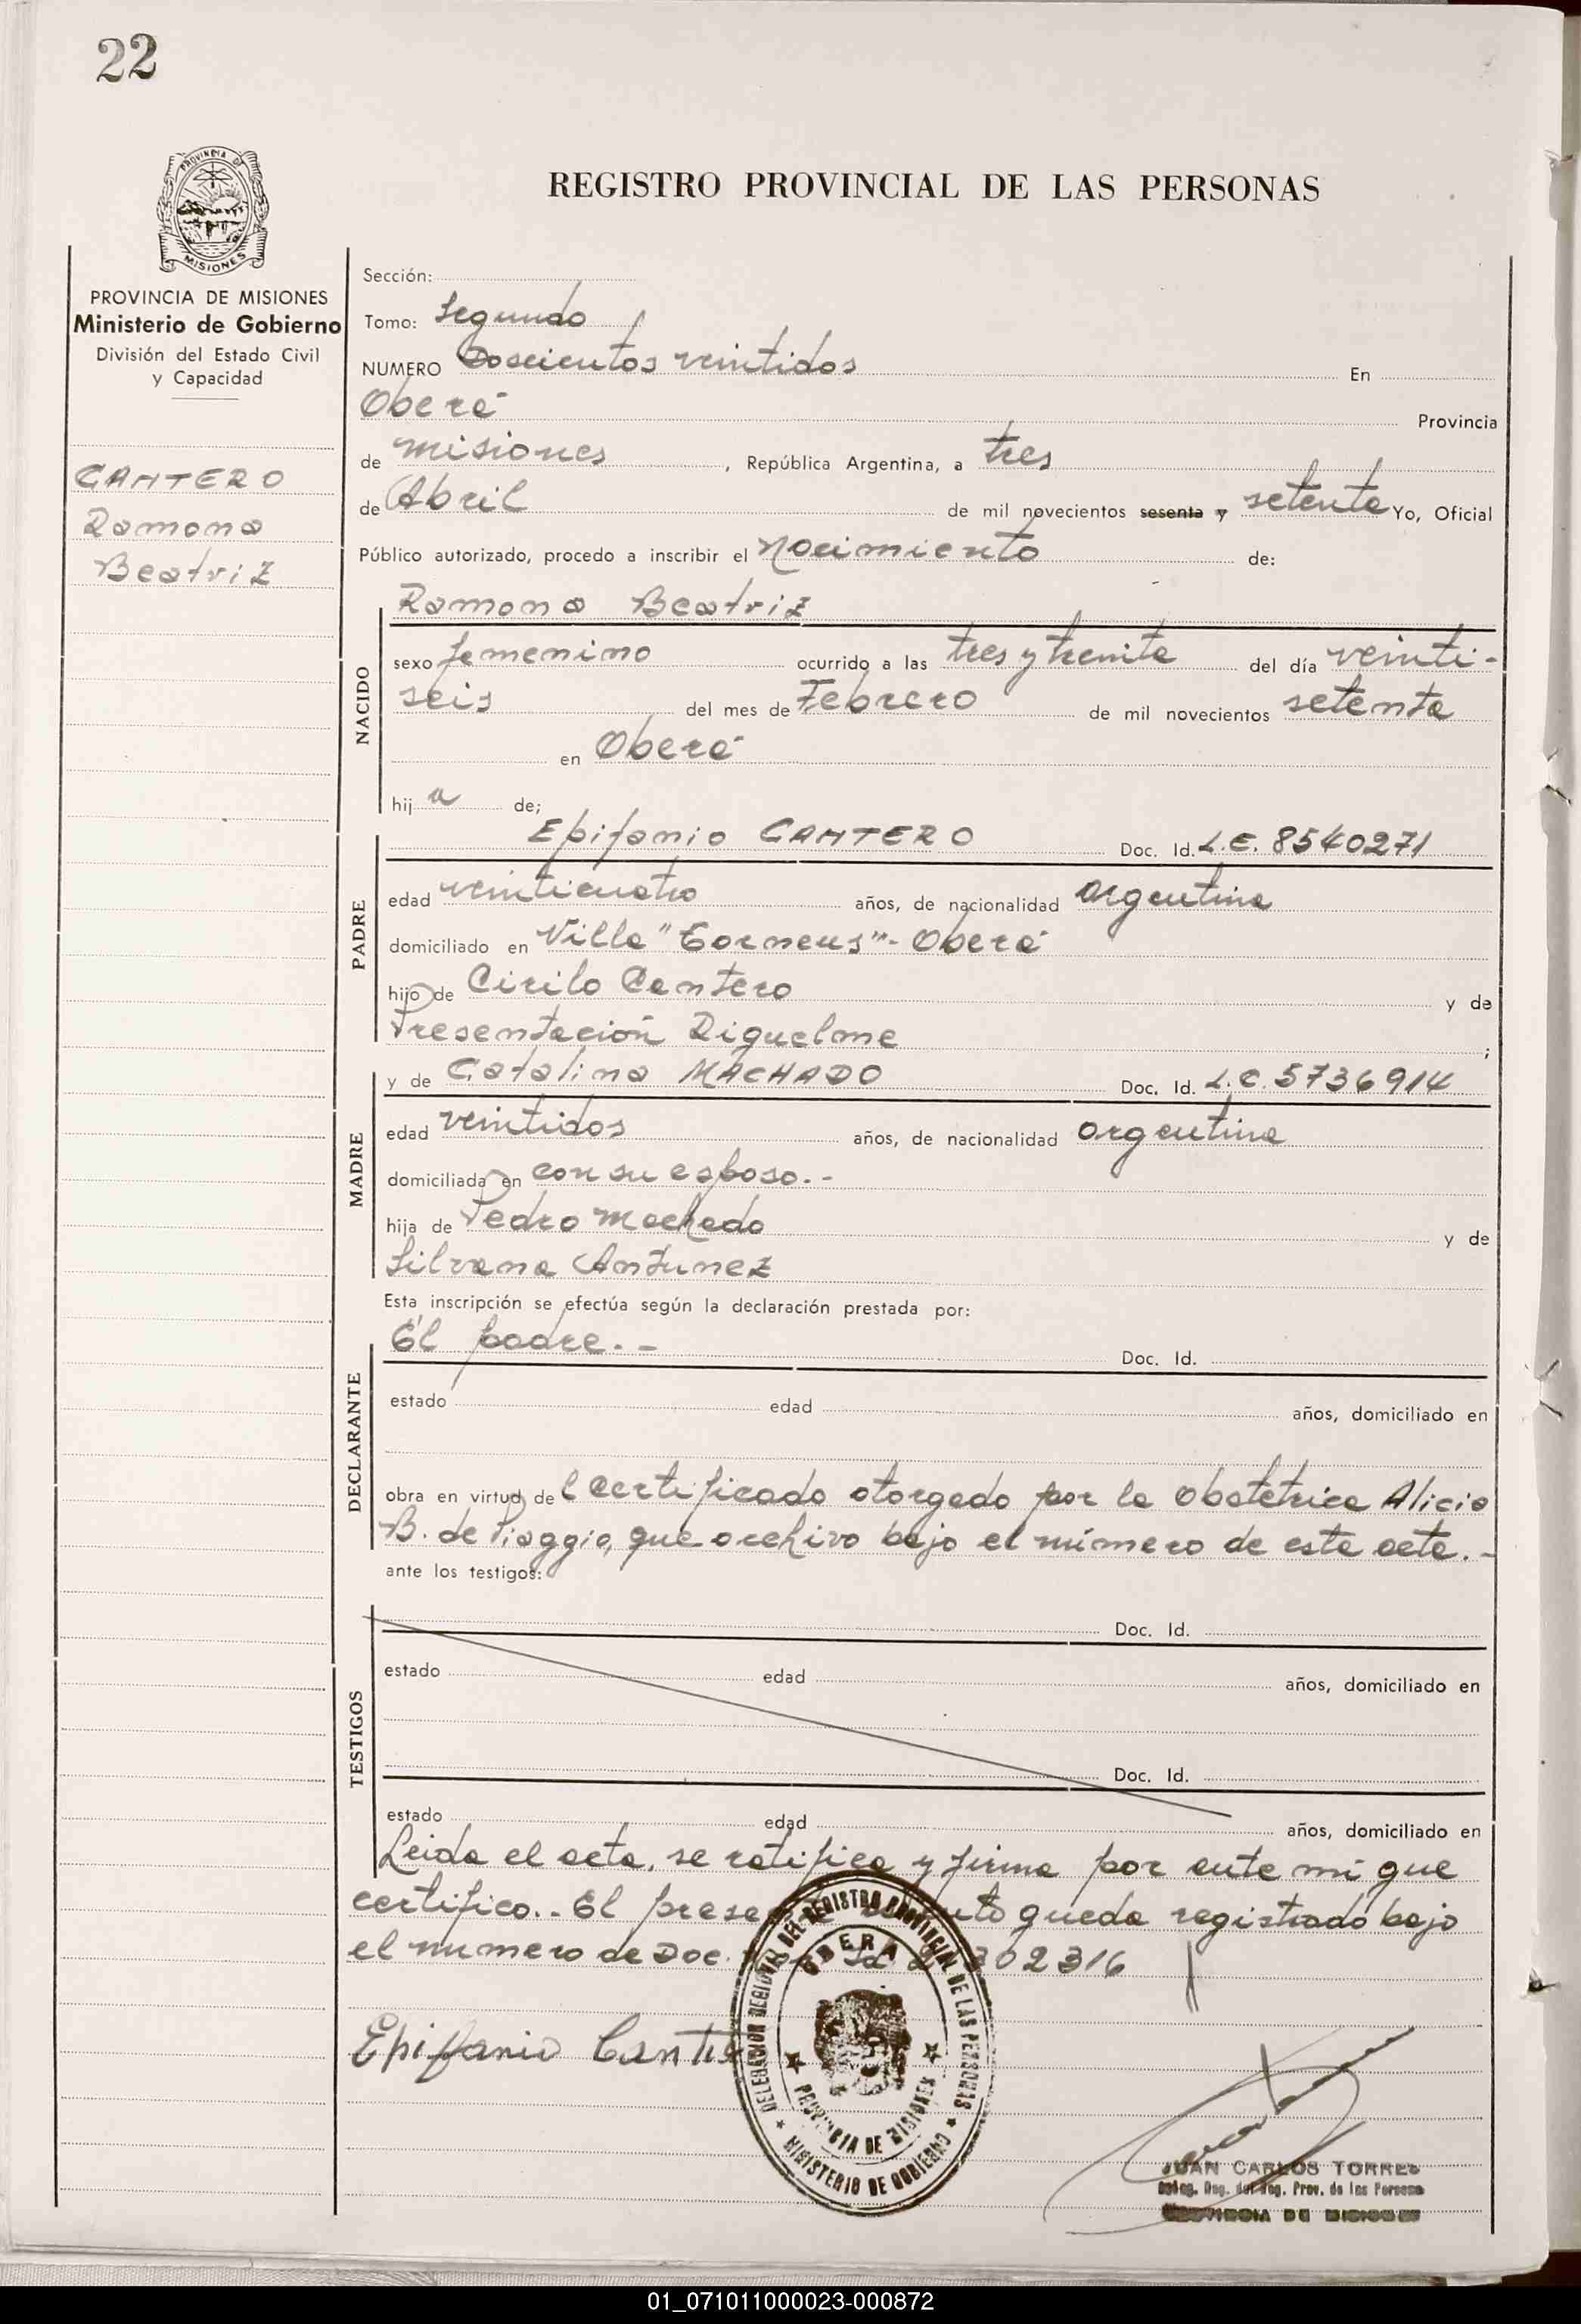 22
PROVINCIA DE
MISIONES
REGISTRO PROVINCIAL DE LAS PERSONAS
PROVINCIA DE MISIONES
Ministerio de Gobierno
División del Estado Civil
y Capacidad
CANTERO
Ramona
Beatriz
Sección:
Tomo: Segundo
NUMERO Doscientos veintidos En
Oberá Provincia
de Misiones, República Argentina, a tres
de Abril de mil novecientos sesenta y setenta Yo, Oficial
Público autorizado, procedo a inscribir el Nacimiento de:
Ramona Beatriz
NACIDO
sexo femenino ocurrido a las tres y treinta del día veinti-
seis del mes de Febrero de mil novecientos setenta
en Oberá
hij a de;
Epifanio CANTERO Doc. Id. L.E. 8540271
PADRE
edad veinticuatro años, de nacionalidad argentina
domiciliado en Villa " "- Oberá
hijo de Cirilo Cantero y de
Presentación Riquelme ;
y de Catalina MACHADO Doc. Id. L.C. 5736914
MADRE
edad veintidos años, de nacionalidad argentina
domiciliada en con su esposo.-
hija de Pedro Machado y de
Silvana Antunez
Esta inscripción se efectúa según la declaración prestada por:
El padre.- Doc. Id.
DECLARANTE
estado edad años, domiciliado en
obra en virtud de l certificado otorgado por la obstetrica Alicia
B. de Piaggio, que archivo bajo el número de esta acta.-
ante los testigos:
Doc. Id.
TESTIGOS
estado edad años, domiciliado en
Doc. Id.
estado edad años, domiciliado en
Leida el acta, se ratifica y firma por ante mí que
certifico.- El queda registrado bajo
el numero de Doc. 302316
Epifanio Cantero
DELEGACION REGIONAL DEL REGISTRO PROVINCIAL DE LAS PERSONAS
OBERA
PROVINCIA DE MISIONES
MINISTERIO DE GOBIERNO
JUAN CARLOS TORRES
Deleg. Reg. del Reg. Prov. de las Personas
PROVINCIA DE MISIONES
01_071011000023-000872